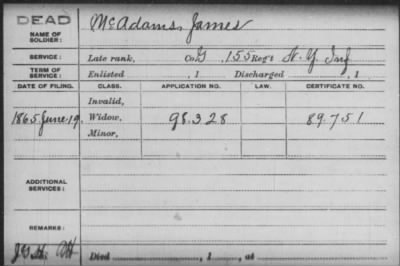 DEAD
NAME OF SOLDIER: McAdams, James
SERVICE: Late rank, Co G, 155 Reg't N. Y. Inf
TERM OF SERVICE: Enlisted , 1 Discharged , 1
DATE OF FILING. CLASS. APPLICATION NO. LAW. CERTIFICATE NO.
Invalid,
1865 June 19. Widow, 98.328 89.751
Minor,
ADDITIONAL SERVICES:
REMARKS:
Died , 1 , at